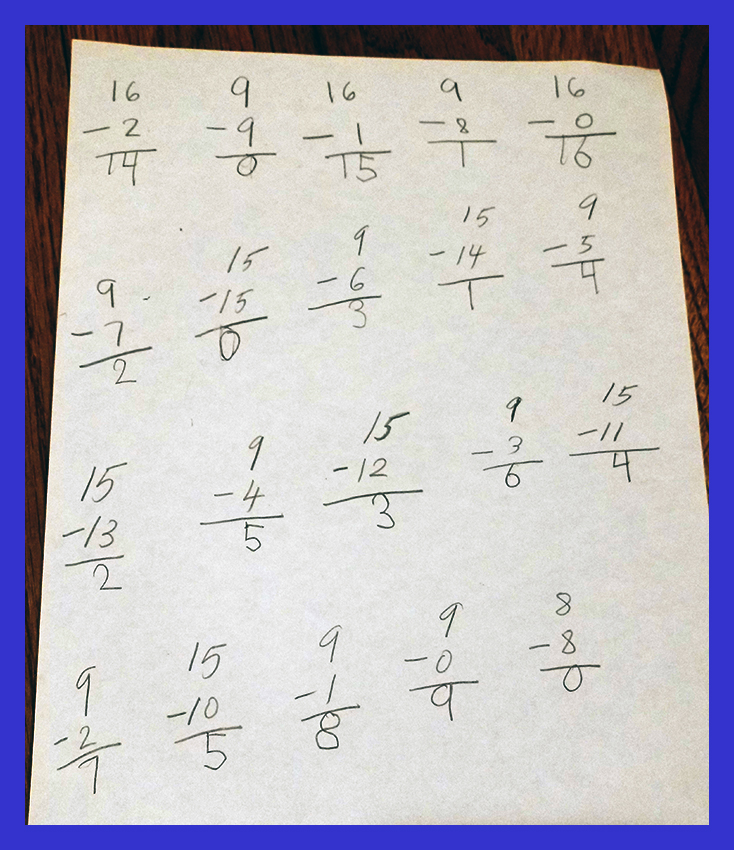 16 9 16 9 16
-2 -9 -1 -8 -0
14 0 15 1 16
9 15 9 15 9
-7 -15 -6 -14 -5
2 0 3 1 4
15 9 15 9 15
-13 -4 -12 -3 -11
2 5 3 6 4
9 15 9 9 8
-2 -10 -1 -0 -8
7 5 8 9 0